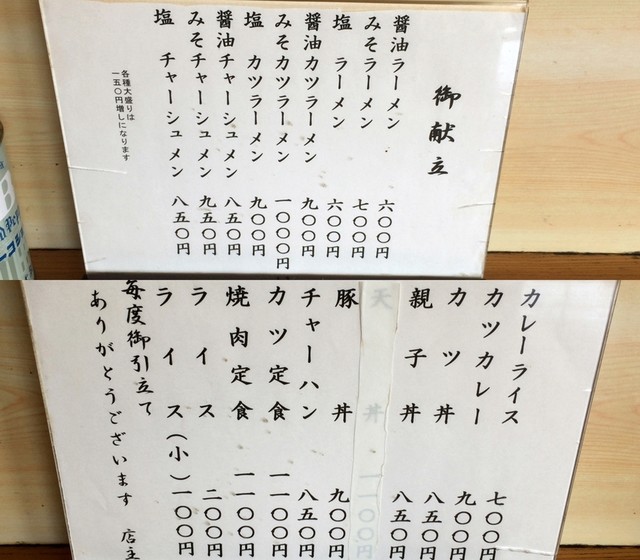 御献立
醤油ラーメン 六〇〇円
みそラーメン 七〇〇円
塩 ラーメン 六〇〇円
醤油カツラーメン 九〇〇円
みそカツラーメン 一〇〇〇円
塩 カツラーメン 九〇〇円
醤油チャーシュメン 八五〇円
みそチャーシュメン 九五〇円
塩 チャーシュメン 八五〇円
各種大盛りは
一五〇円増しになります
カレーライス 七〇〇円
カツカレー 九〇〇円
カツ丼 八五〇円
親子丼 八五〇円
天丼 一一〇〇円
豚丼 九〇〇円
チャーハン 八五〇円
カツ定食 一一〇〇円
焼肉定食 一一〇〇円
ライス 二〇〇円
ライス(小) 一〇〇円
毎度御引立て
ありがとうございます 店主